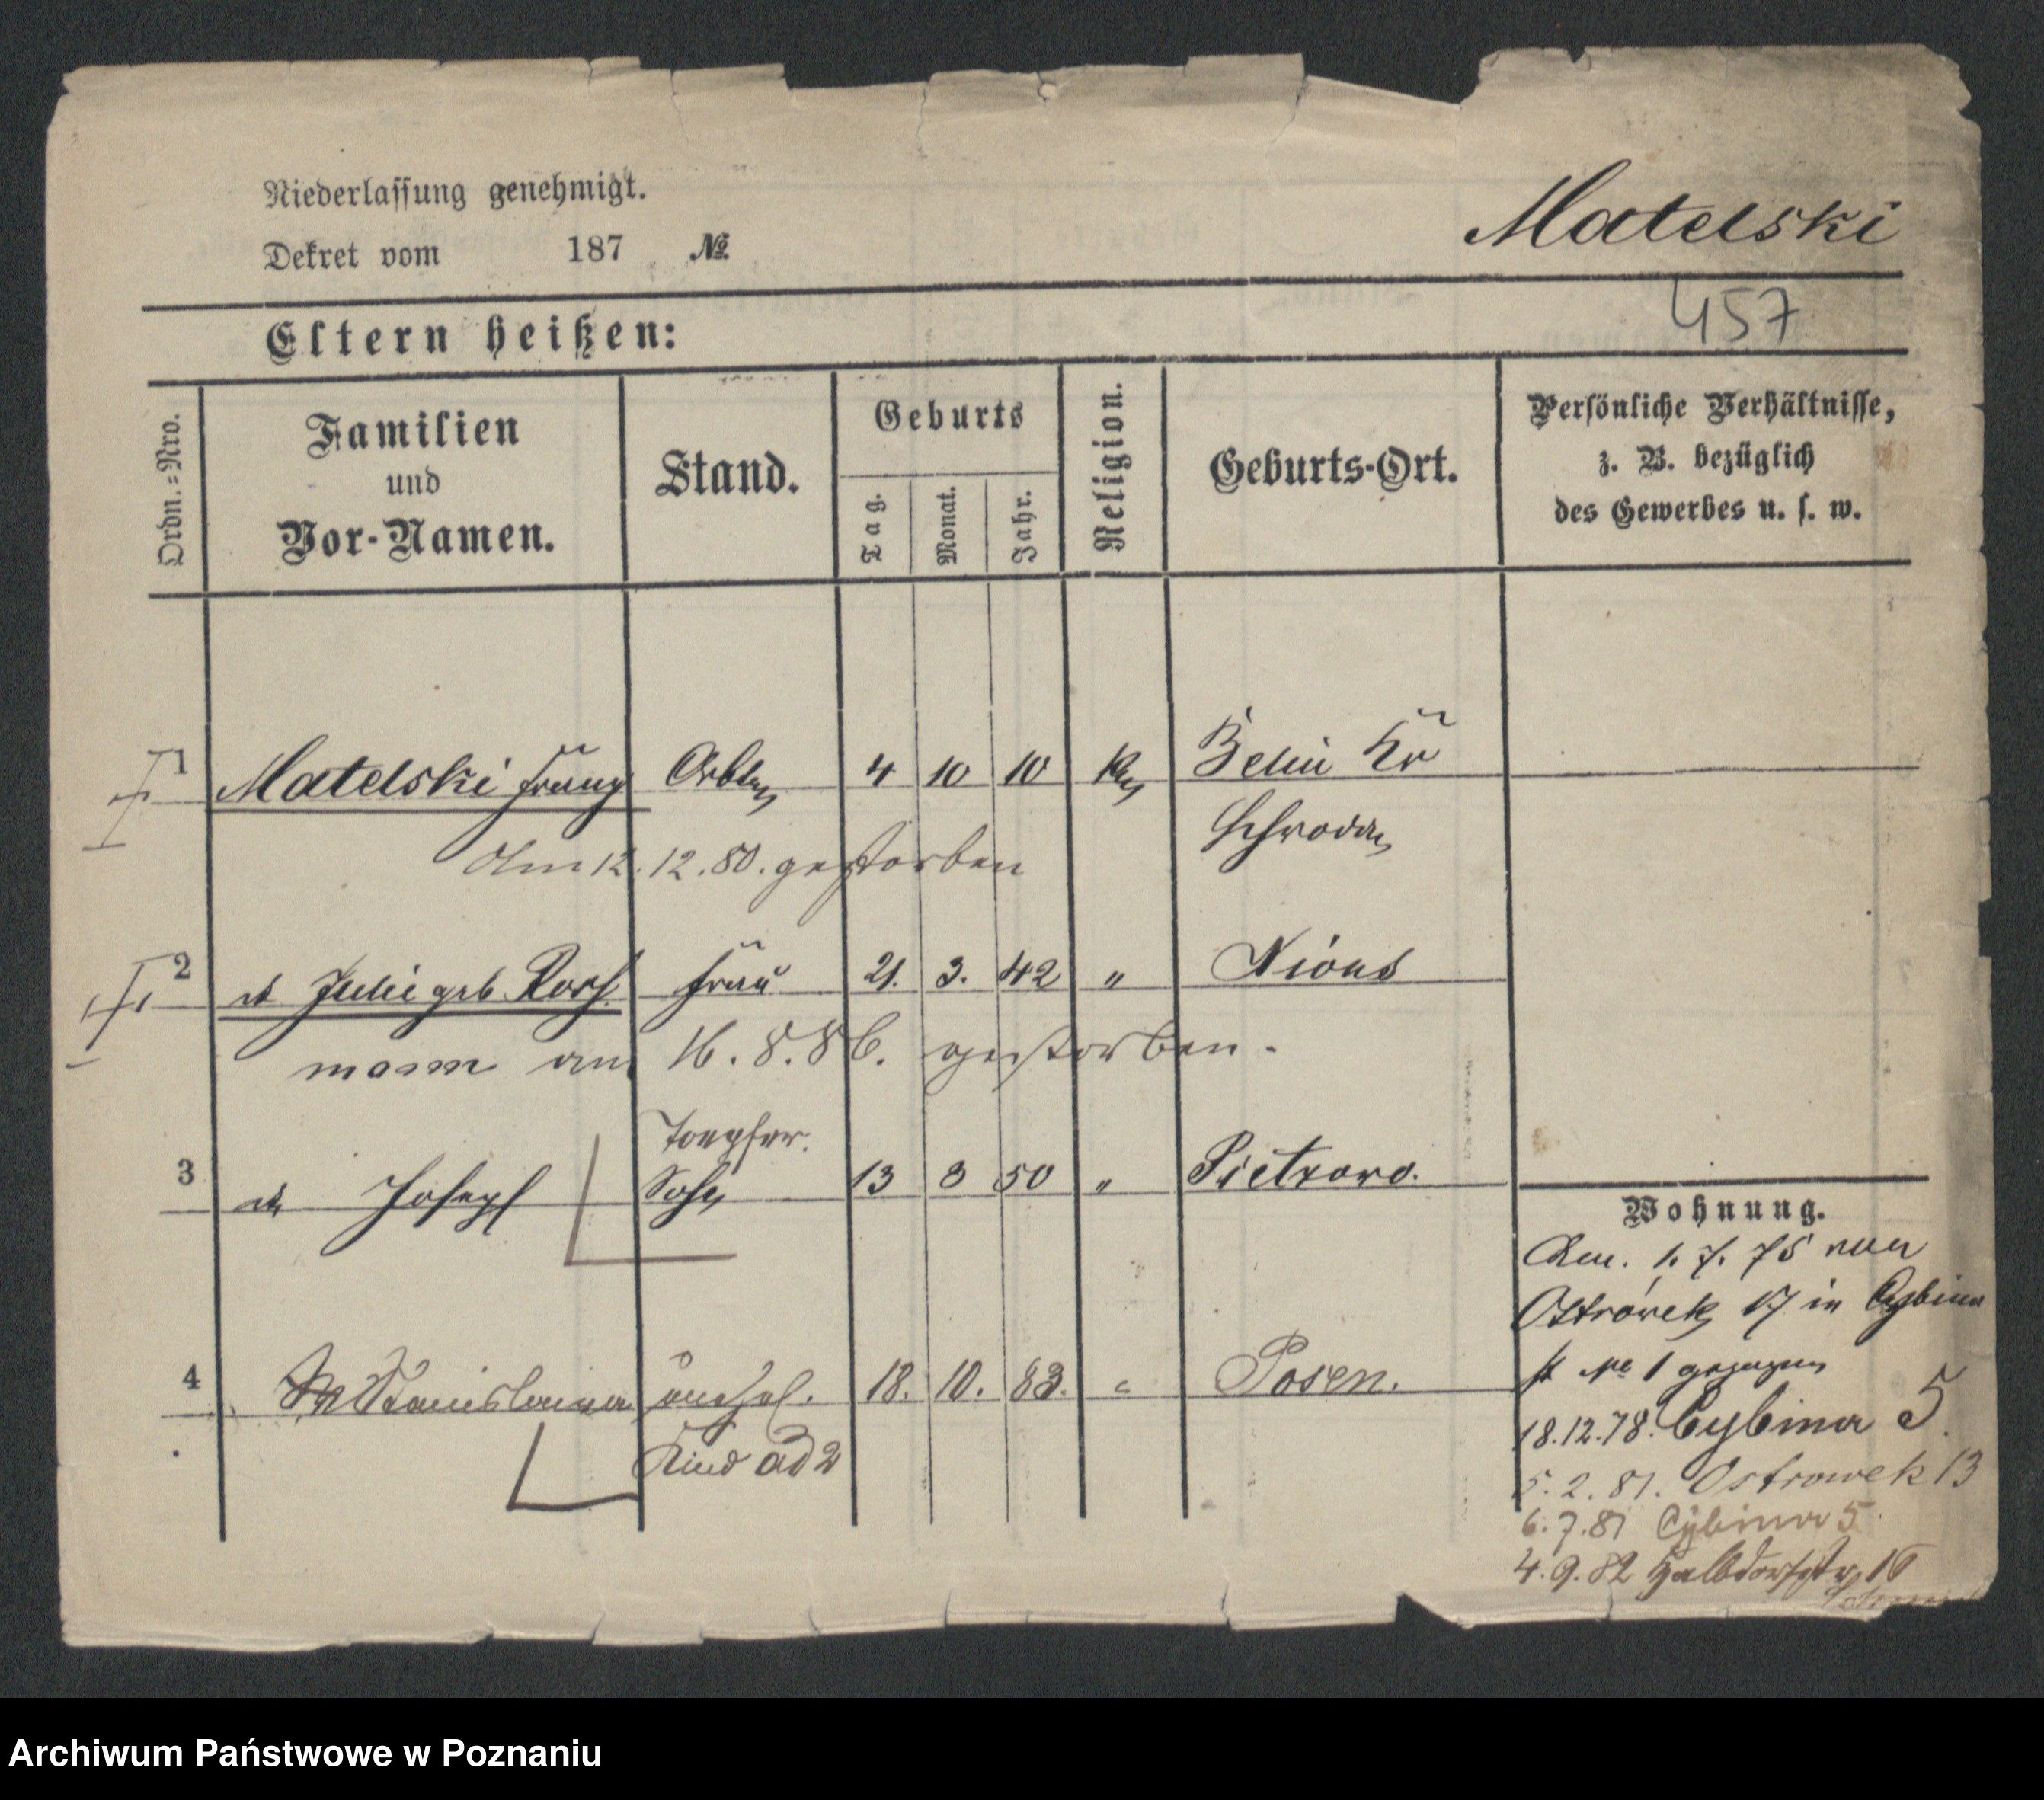 Niederlassung genehmigt.
Dekret vom 187 №
Matelski
457
Eltern heißen:
Ordn.=Nro.
Familien
und
Vor-Namen.
Stand.
Geburts
Tag.
Monat.
Jahr.
Religion.
Geburts-Ort.
Persönliche Verhältnisse,
z. B. bezüglich
des Gewerbes u. s. w.
1 Matelski Franz Arbtr 4 10 10 Kr
Schroda
Am 12.12.80. gestorben
2 Julie geb Frau 21. 3. 42 " Xions
am 16. 8. 86. gestorben.
Toepfer.
3 Joseph Sohn 13 3 50 " Pietrowo.
4 Stanislawa unehel. 18. 10. 83. " Posen.
Kind ad 2
Wohnung.
Am. 1. 7. 75 von
Ostrówek 17 in Cybina
st No 1 gezogen
18.12.78. Cybina 5.
5. 2. 81. Ostrowek 13
6. 7. 81 Cybina 5.
4. 9. 82 Halbdorfstr. 16
Archiwum Państwowe w Poznaniu